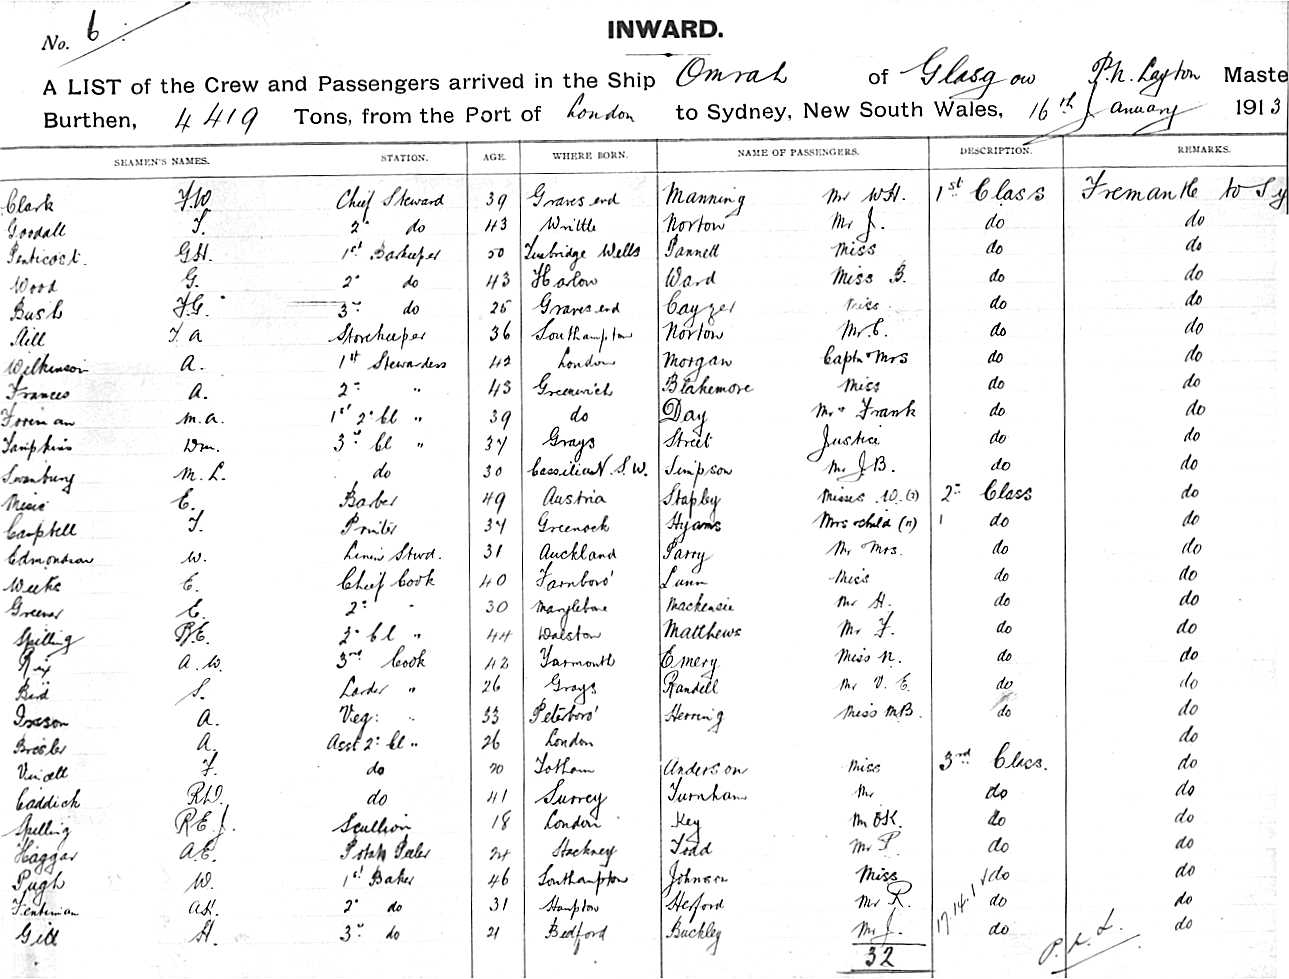 No. 6
INWARD.
A LIST of the Crew and Passengers arrived in the Ship Omrah of Glasgow P.N. Layton Maste
Burthen, 4419 Tons, from the Port of London to Sydney, New South Wales, 16th January 1913
SEAMEN'S NAMES. STATION. AGE. WHERE BORN. NAME OF PASSENGERS. DESCRIPTION. REMARKS.
Clark F.W. Chief Steward 39 Gravesend Manning Mr W.H. 1st Class Fremantle to Sy
Goodall T. 2" do 43 Writtle Norton Mr J. do do
Penticost. G.H. 1st Barkeeper 50 Tunbridge Wells Pannett Miss do do
Wood G. 2" do 43 Harlow Ward Miss B. do do
Bush F.G. 3rd do 25 Gravesend Cayzer Miss do do
Hill T A Storekeeper 36 Southampton Norton Mr C. do do
Wilkinson A. 1st Stewardess 42 London Morgan Capt + Mrs do do
Frances A. 2" " 43 Greenwich Blakemore Miss do do
Foreman M.A. 1st 2" Cl " 39 do Day Mr Frank do do
Tampkins Wm. 3rd Cl " 37 Grays Street Justice do do
Swanbury M.L. do 30 Cassilis N.S.W. Simpson Mr J.B. do do
E. Barber 49 Austria Stapley Misses W. (2) 2" Class do
Campbell T. Printer 37 Greenock Hyams Mrs + child (11) 1 do do
Edmondson W. Linen Stwd. 31 Auckland Parry Mr Mrs. do do
Weeks E. Chief Cook 40 Farnboro' Lunn Miss do do
Greener C. 2" " 30 Marylebone Mackensie Mr H. do do
Spilling R.E. 2" Cl " 44 Walston Matthews Mr F. do do
Rix A.W. 3rd Cook 42 Yarmouth Emery Miss N. do do
Bird S. Larder " 26 Grays Randell Mr V. E. do do
Ixeson A. Veg: " 33 Peterboro' Herring Miss M.B. do do
A. Asst 2" Cl " 26 London do
F. do 20 Totham Anderson Miss 3rd Class. do
Caddick R.W. do 41 Surrey Turnham Mr do do
Spelling R.E.J. Scullion 18 London Key Mr O.K. do do
Haggar A.E. Potato Peeler 24 Hackney Todd Mr P. do do
Pugh W. 1st Baker 46 Southampton Johnson Miss do do
Fentiman A.H. 2" do 31 Hampton Hesford Mr R. do do
Gill H. 3rd do 21 Bedford Buckley Mr J. do do
32
17.14.1